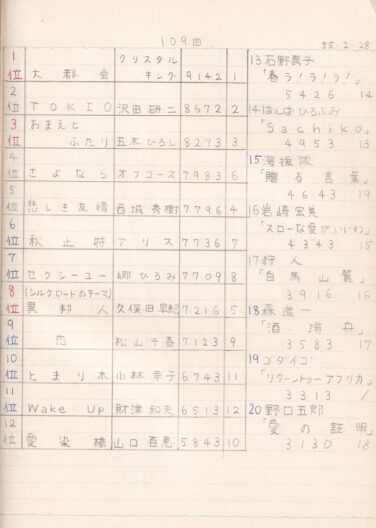 109回 55.2.28
1位 大都会 クリスタルキング 9142 1
2位 TOKIO 沢田研二 8672 2
3位 おまえとふたり 五木ひろし 8273 3
4位 さよなら オフコース 7983 6
5位 悲しき友情 西城秀樹 7796 4
6位 秋止符 アリス 7736 7
7位 セクシーユー 郷ひろみ 7709 8
8位 (シルクロードのテーマ) 異邦人 久保田早紀 7216 5
9位 恋 松山千春 7123 9
10位 とまり木 小林幸子 6743 11
11位 Wake Up 財津和夫 6513 12
12位 愛染橋 山口百恵 5843 10
13 石野真子
「春ラ!ラ!ラ!」
5426 14
14 ばんばひろふみ
「Sachiko」
4953 13
15 海援隊
「贈る言葉」
4643 19
16 岩崎宏美
「スローな愛がいいわ」
4343 15
17 狩人
「白馬山麓」
3916 16
18 森進一
「酒場舟」
3583 17
19 ゴダイゴ
「リターントゥーアフリカ」
3313 /
20 野口五郎
「愛の証明」
3130 18